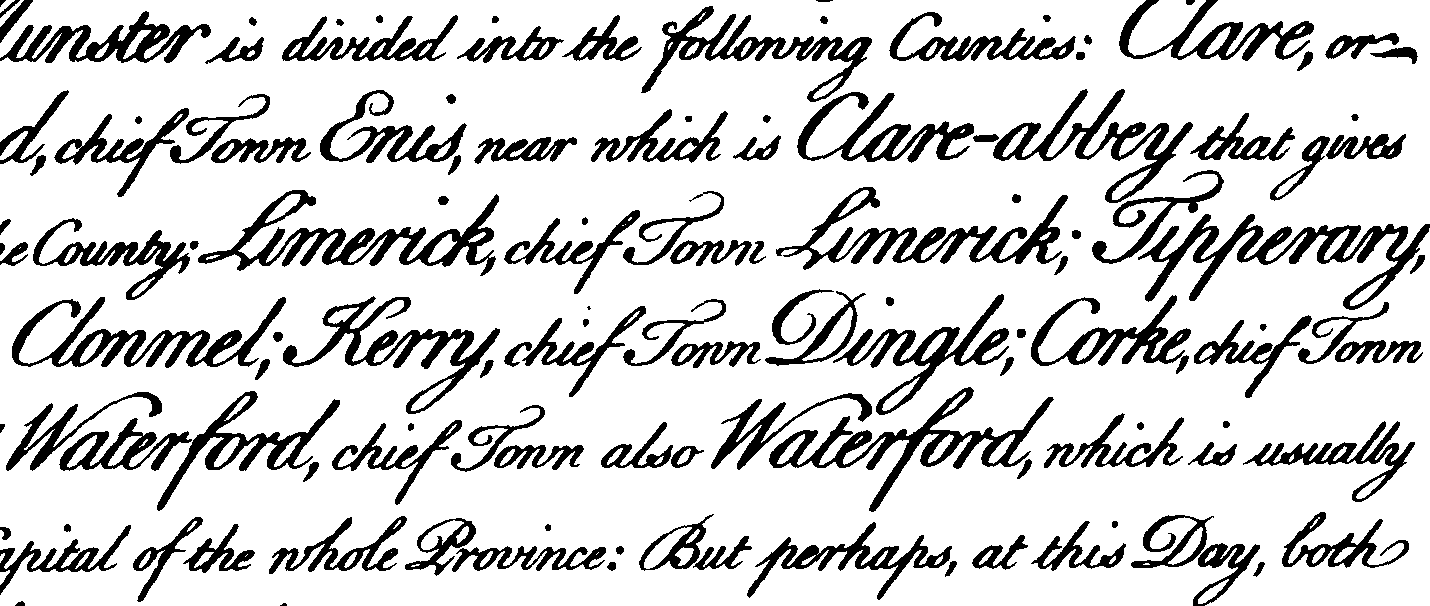 Munster is divided into the following Counties: Clare, or
d, chief Town Enis, near which is Clare-abbey that gives
he County; Limerick, chief Town Limerick; Tipperary,
Clonmel; Kerry, chief Town Dingle; Corke, chief Town
Waterford, chief Town also Waterford, which is usually
Capital of the whole Province: But perhaps, at this Day, both